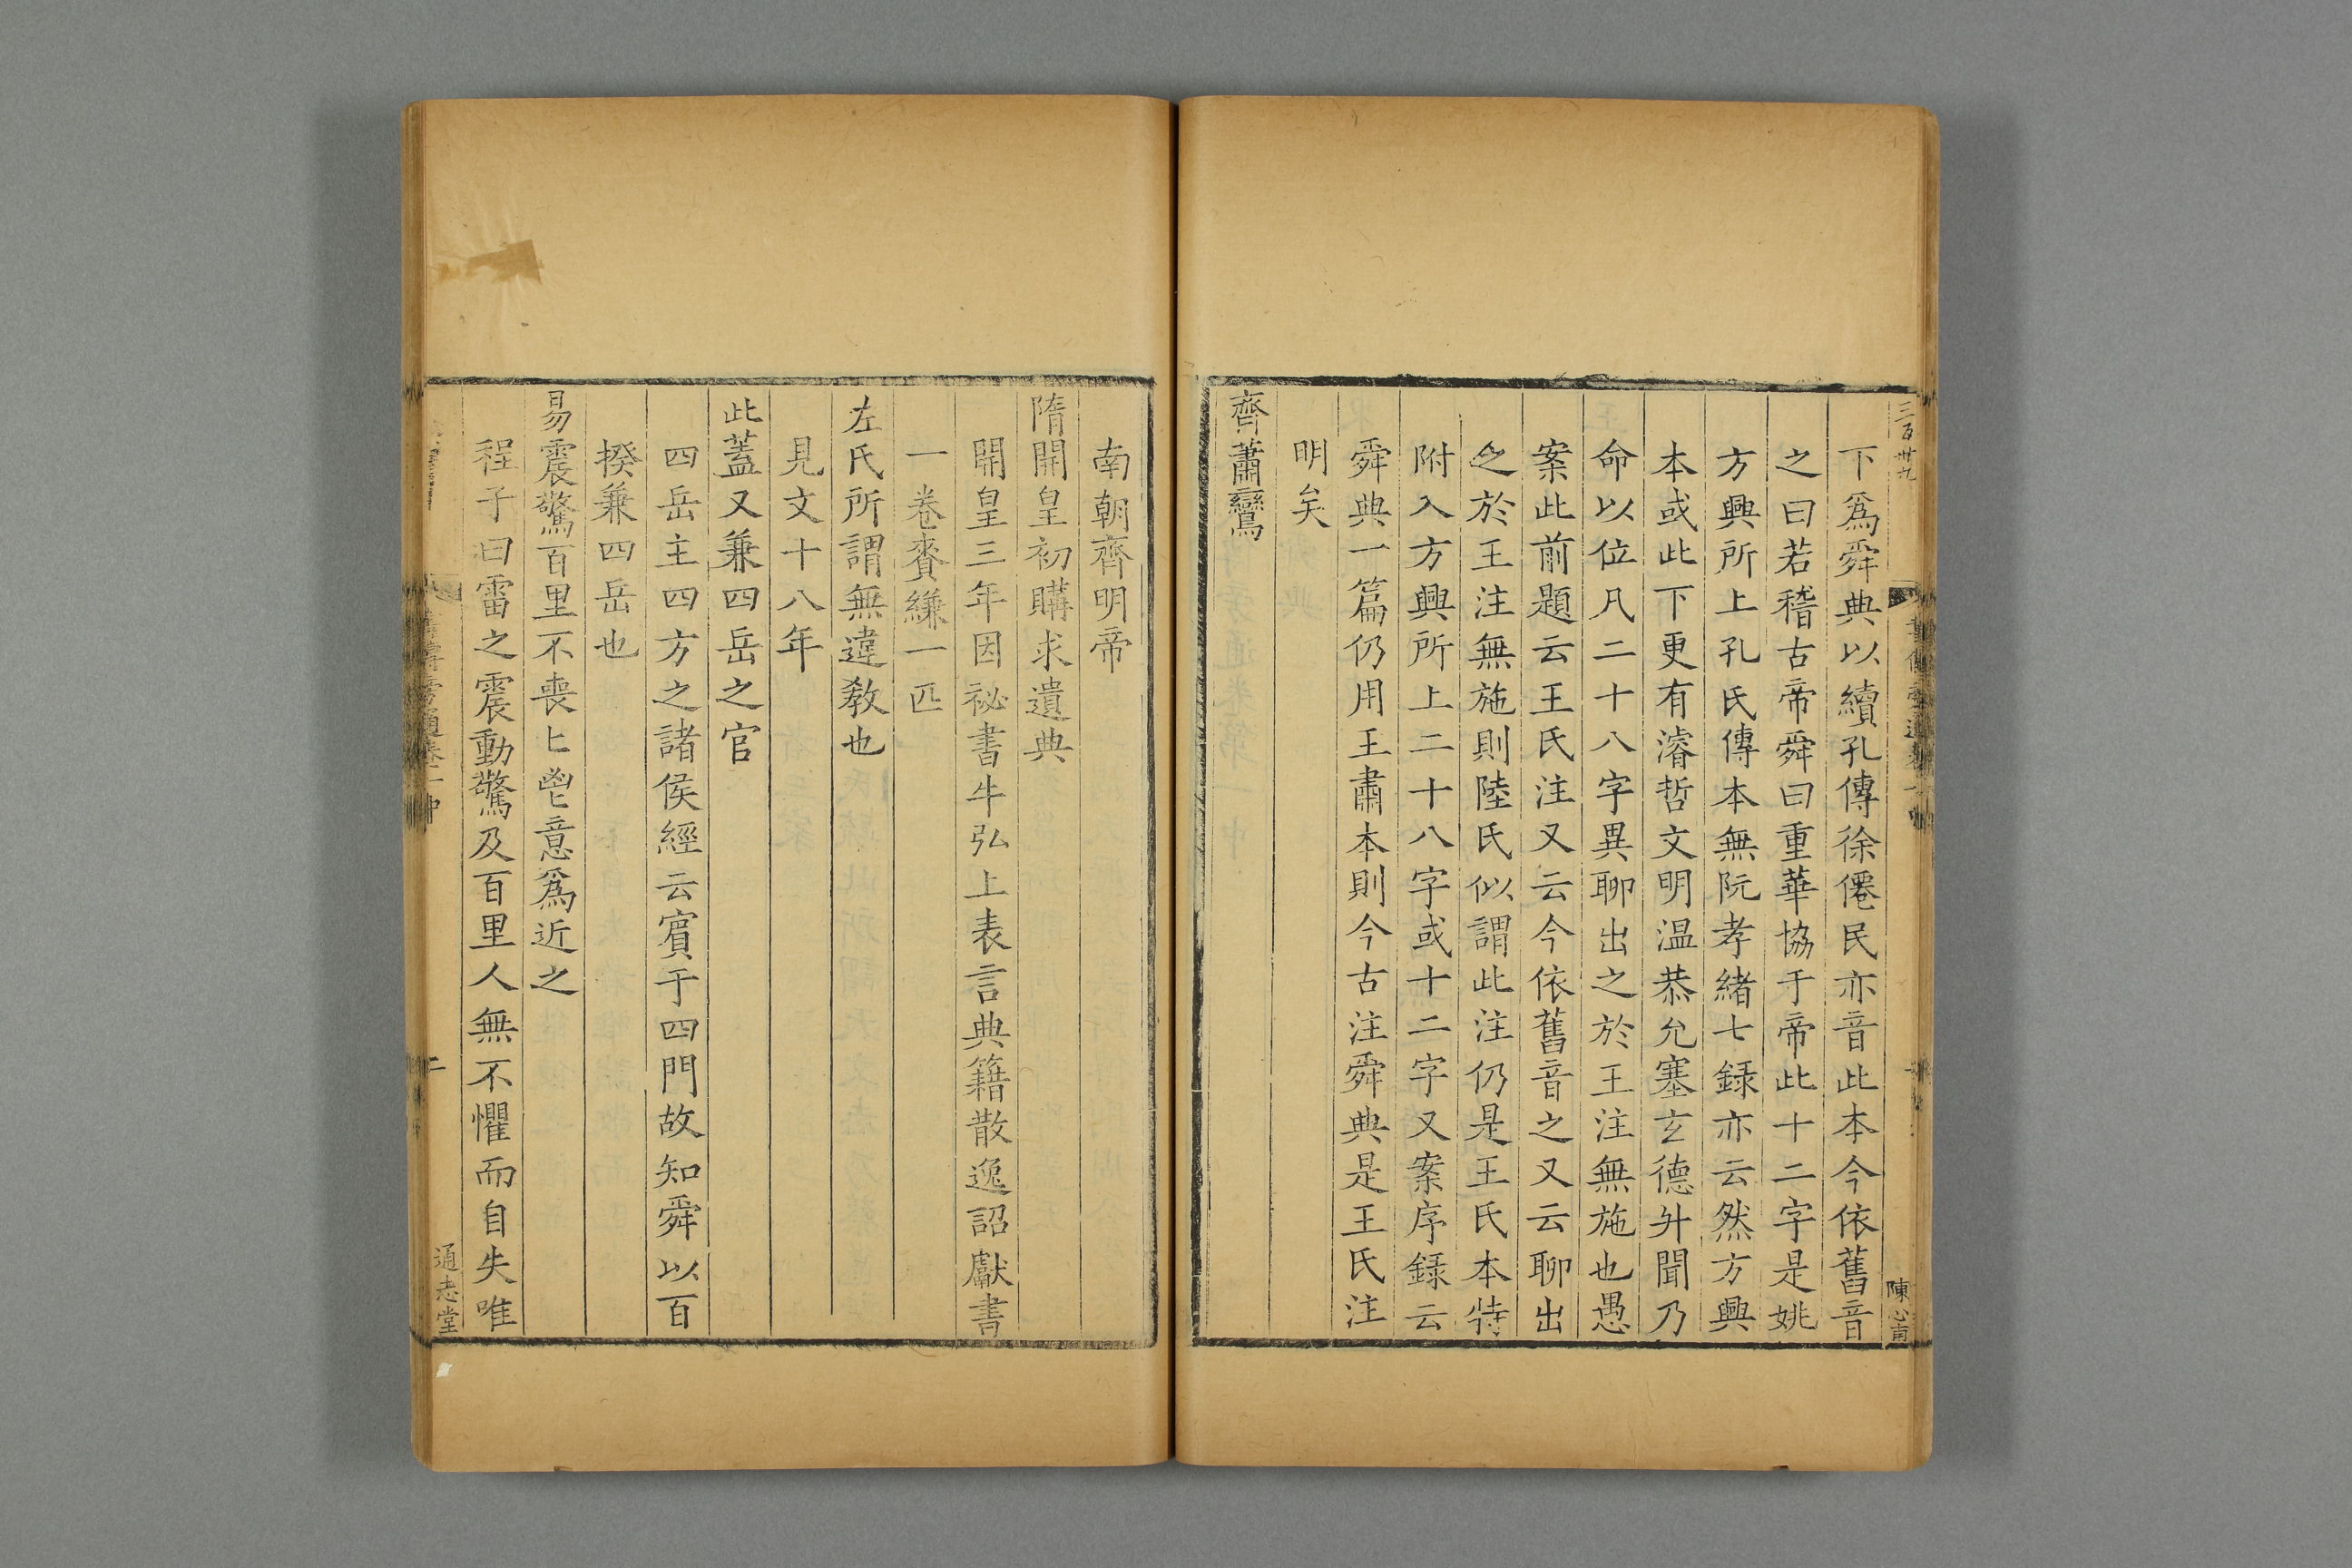 三百卅九
陳心甫
下爲舜典以續孔傳徐僊民亦音此本今依舊音
之曰若稽古帝舜曰重華協于帝此十二字是姚
方興所上孔氏傳本無阮孝緒七録亦云然方興
本或此下更有濬哲文明温恭允塞玄德升聞乃
命以位凡二十八字異聊出之於王注無施也愚
案此前題云王氏注又云今依舊音之又云聊出
之於王注無施則陸氏似謂此注仍是王氏本特
附入方興所上二十八字或十二字又案序録云
舜典一篇仍用王肅本則今古注舜典是王氏注
明矣
齊蕭鸞
南朝齊明帝
隋開皇初購求遺典
開皇三年因祕書牛弘上表言典籍散逸詔獻書
一卷賚縑一匹
左氏所謂無違敎也
見文十八年
此蓋又兼四岳之官
四岳主四方之諸侯經云賓于四門故知舜以百
揆兼四岳也
易震驚百里不喪匕鬯意爲近之
程子曰雷之震動驚及百里人無不懼而自失唯
二
通志堂